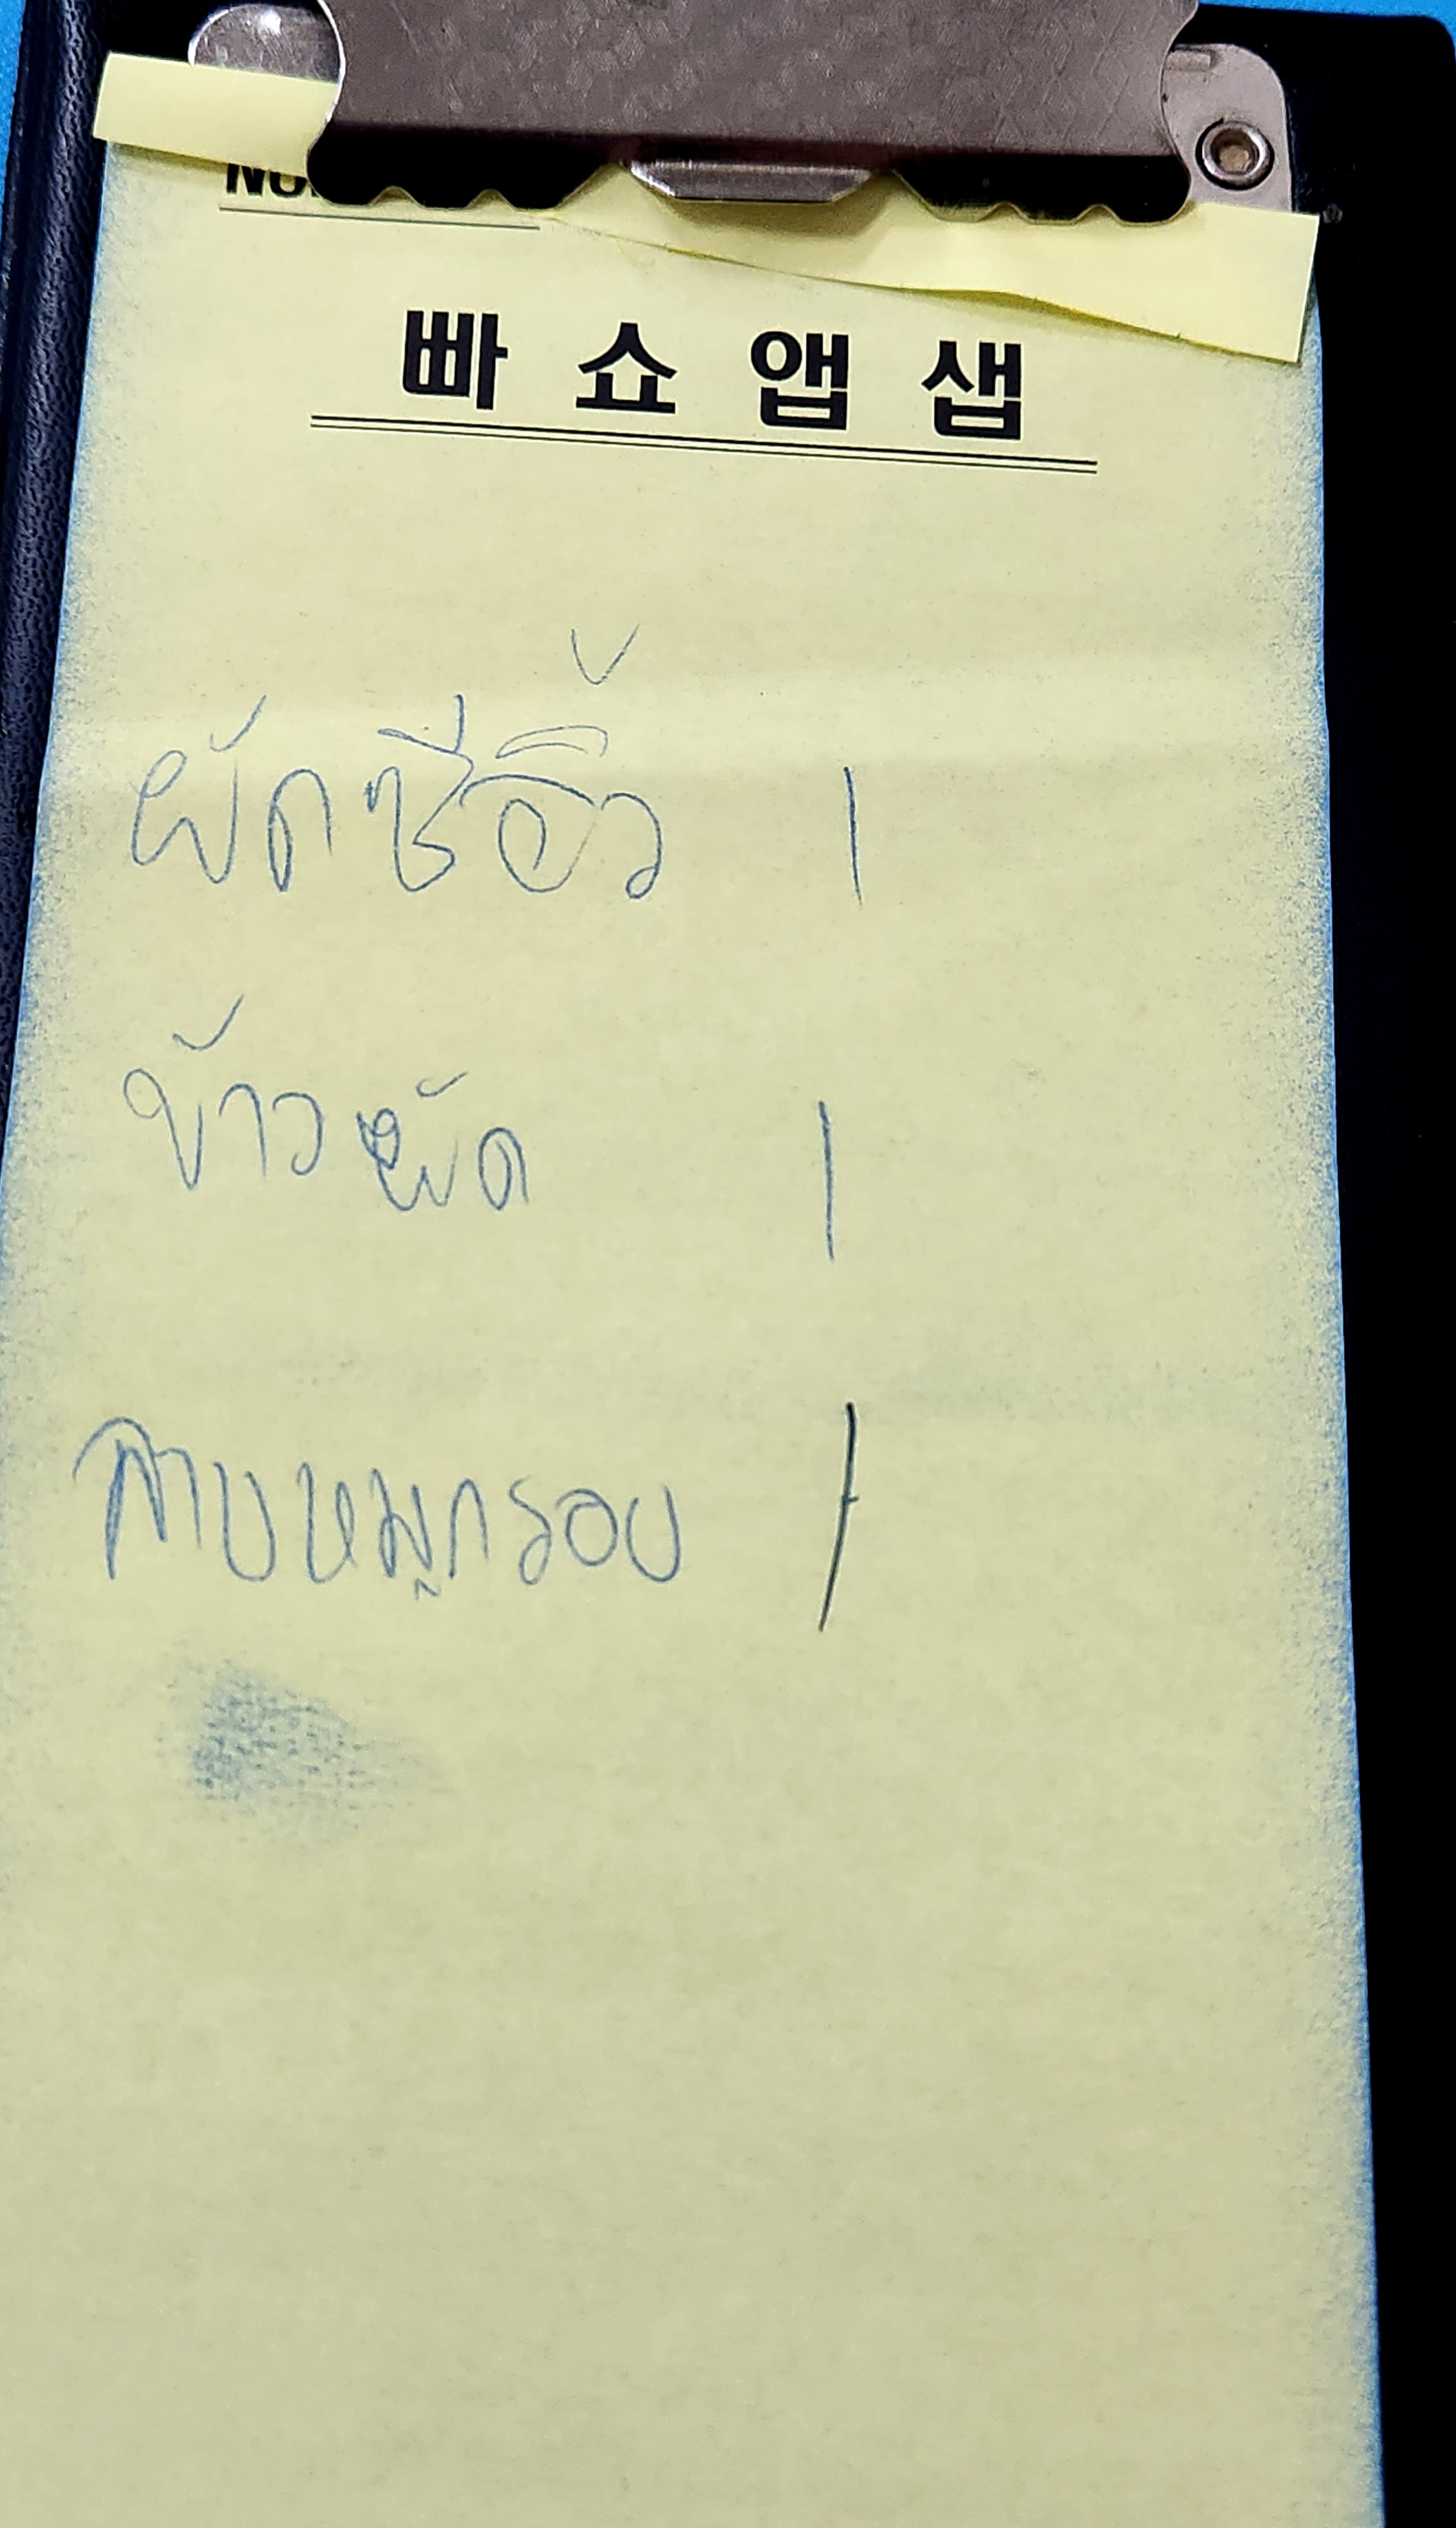 NO.
빠 쇼 앱 샙
ผัดซีอิ้ว 1
ข้าวผัด 1
ลาบหมูกรอบ 1